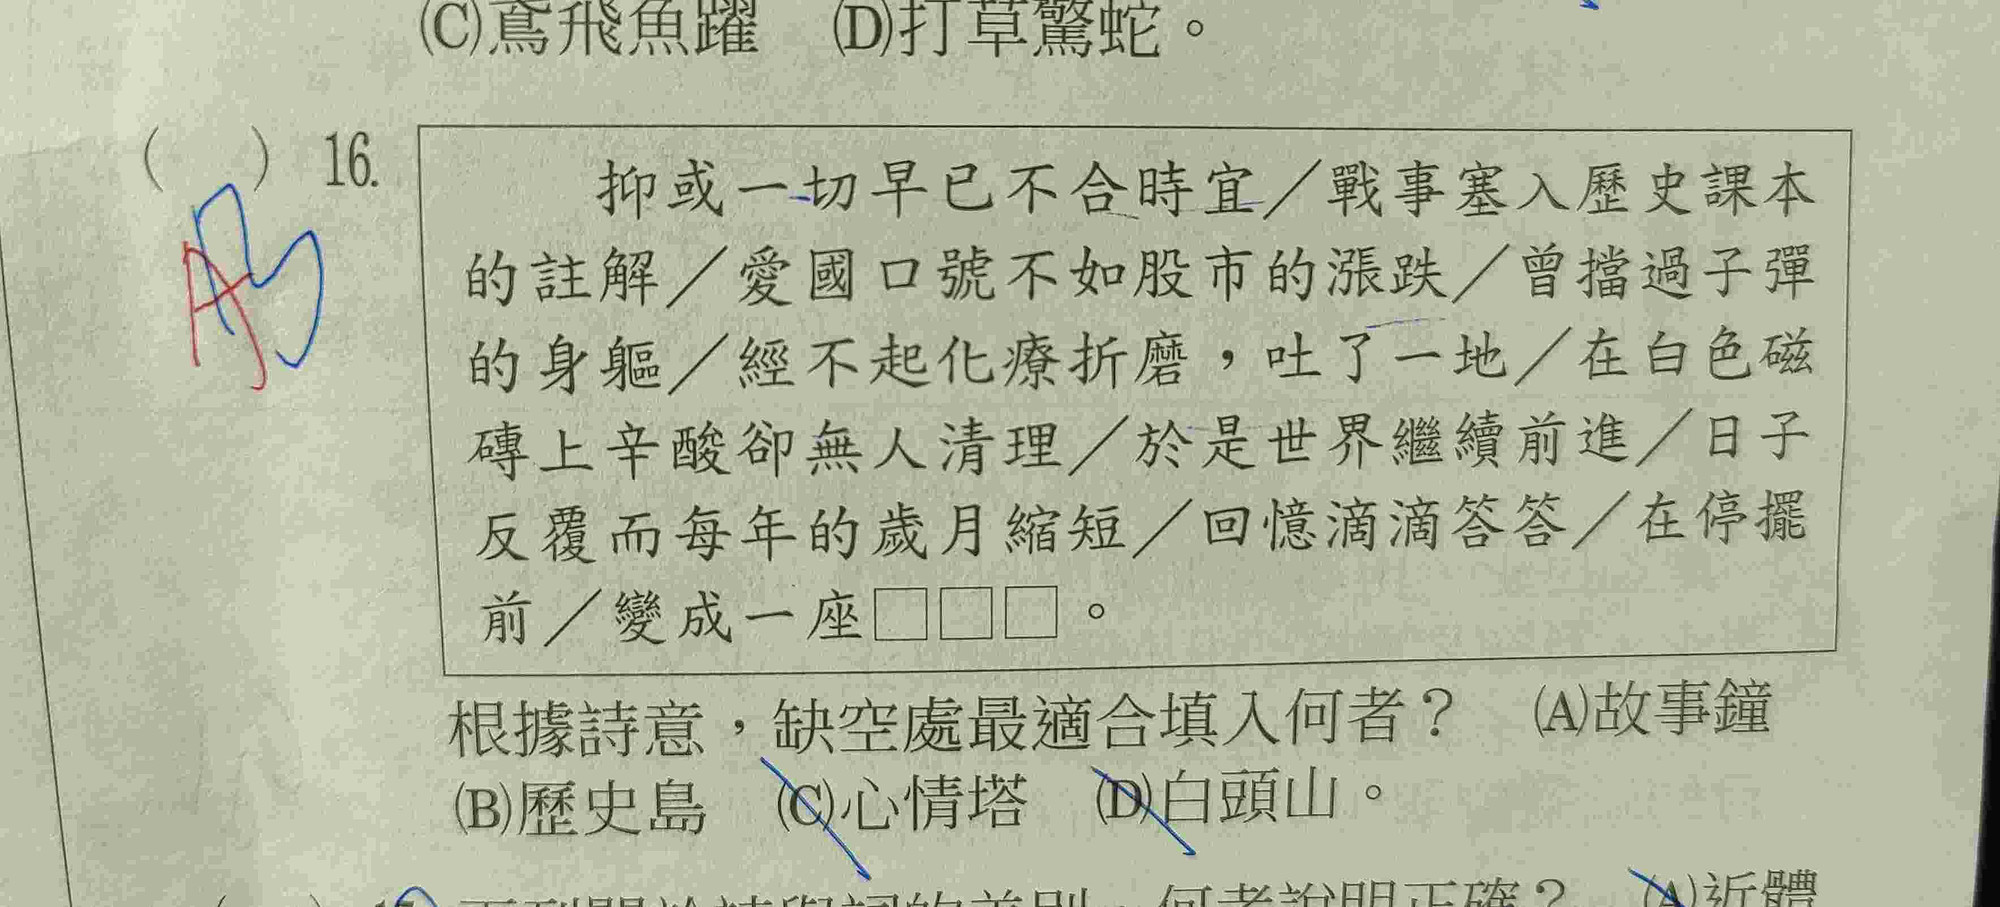 (C)鳶飛魚躍 (D)打草驚蛇。
( ) 16.
抑或一切早已不合時宜／戰事塞入歷史課本
的註解／愛國口號不如股市的漲跌／曾擋過子彈
的身軀／經不起化療折磨，吐了一地／在白色磁
磚上辛酸卻無人清理／於是世界繼續前進／日子
反覆而每年的歲月縮短／回憶滴滴答答／在停擺
前／變成一座□□□。
根據詩意，缺空處最適合填入何者？ (A)故事鐘
(B)歷史島 (C)心情塔 (D)白頭山。
何者說明正確？ (A)近體